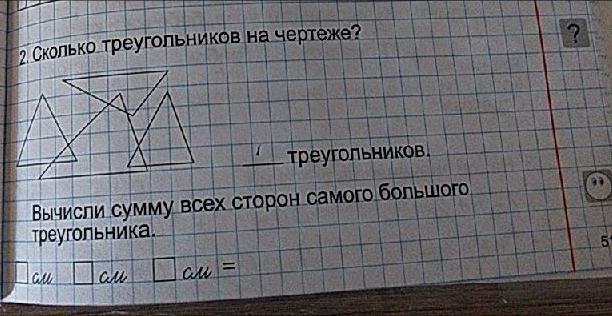 2. Сколько треугольников на чертеже?
?
треугольников.
Вычисли сумму всех сторон самого большого
треугольника.
см см см =